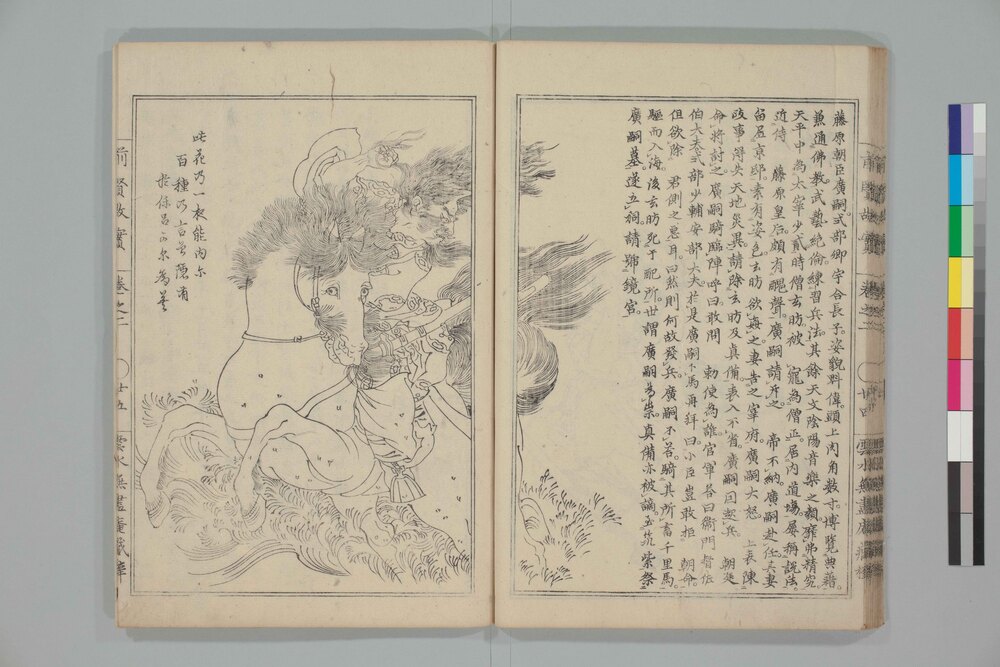 藤原朝臣廣嗣式部卿宇合長子姿貌魁偉頭上肉角数寸博覧典籍
兼通佛教武藝絶倫練習兵法其餘天文陰陽音樂之類靡弗精究
天平中為太宰少貳時僧玄昉被 寵為僧正居内道場屡称説法
近侍 藤原皇后頗有醜聲廣嗣請斥之 帝不納廣嗣赴任其妻
留居京邸素有姿色玄昉欲姦之妻告之宰府廣嗣大怒 上表陳
政事得失天地災異請除玄昉及真備表入不省廣嗣因起兵 朝廷
命将討之廣嗣騎臨陣呼曰敢問 勅使為誰官軍答曰衞門督佐
伯大夫式部少輔安部大夫於是廣嗣下馬再拜曰小臣豈敢拒 朝命
但欲除 君側之惡耳曰然則何故發兵廣嗣不答騎其所畜千里馬
驅而入海後玄昉死于配所世謂廣嗣為祟真備亦被謫玄筑紫祭
廣嗣墓遂立祠請號鏡宮
此花乃一衣能内尓
百種乃言曽隠有
於保呂可尓為莫
前賢故實
卷之二
廿五
雲水無盡庵藏梓
卷之二
廿四
雲水無盡庵藏梓